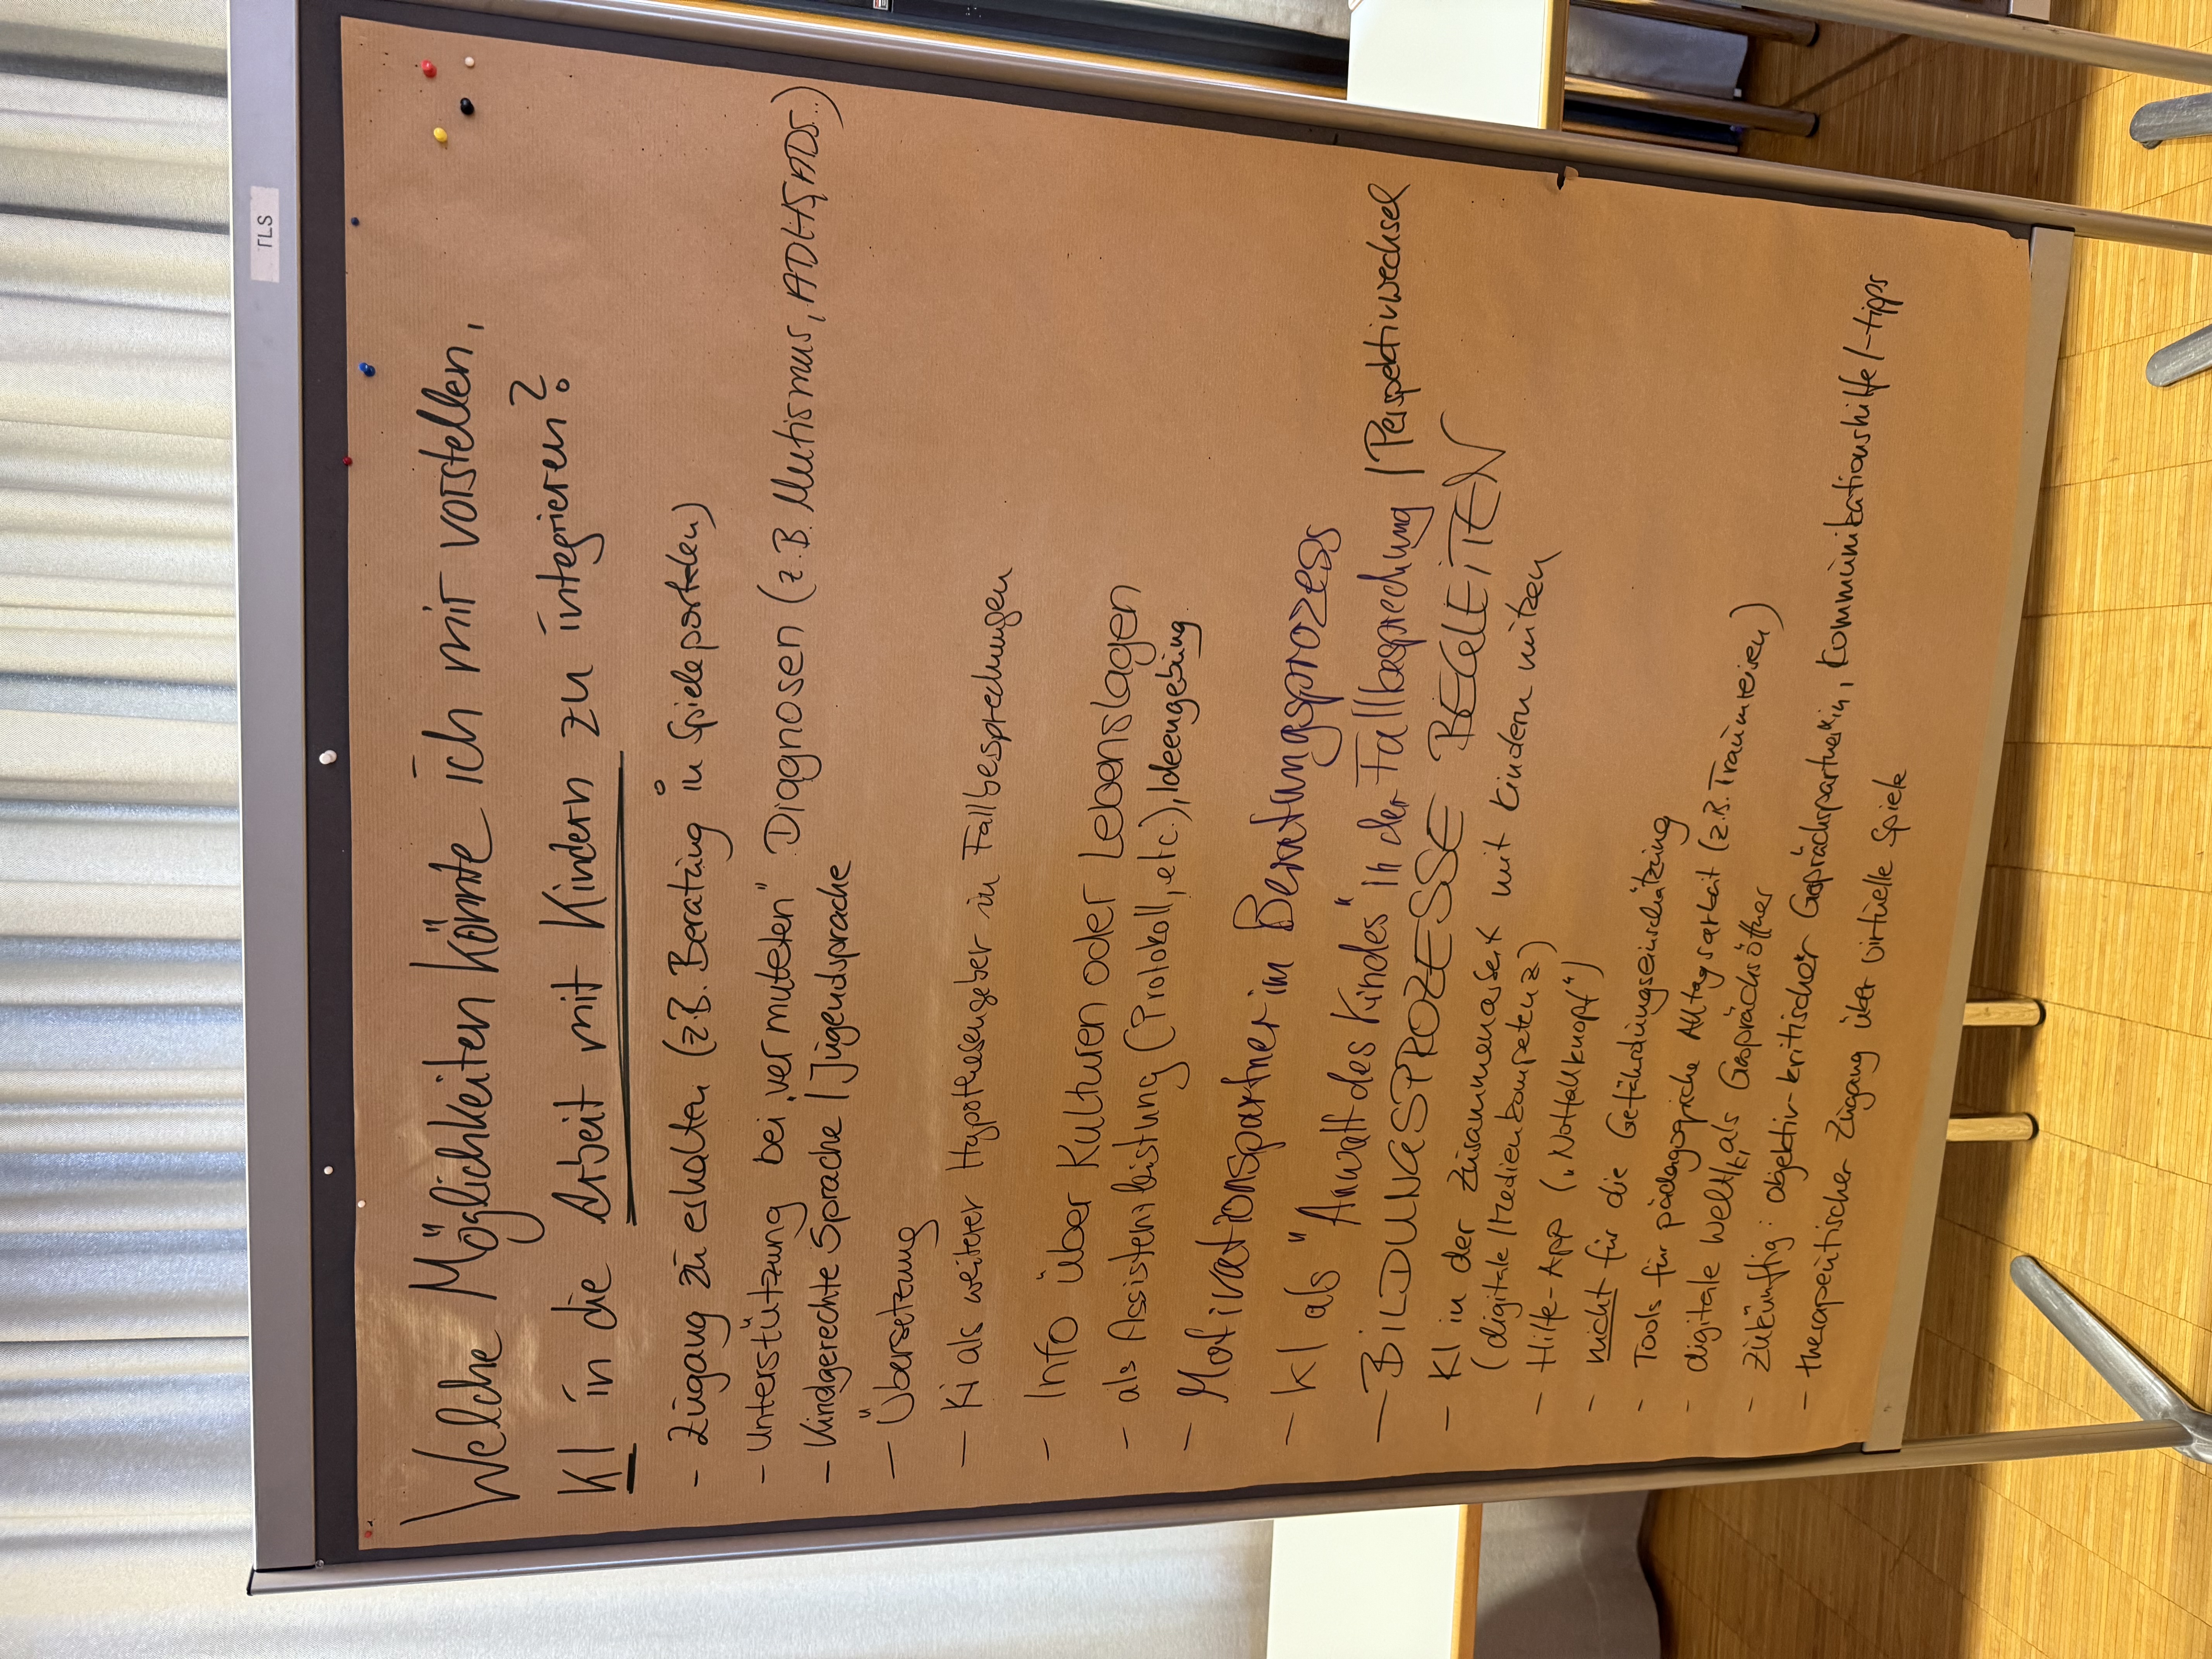 TLS
Welche Möglichkeiten könnte ich mir vorstellen,
KI in die Arbeit mit Kindern zu integrieren?
- Zugang zu erhalten (z.B. Beratung in Spieleportalen)
- Unterstützung bei „vermuteten" Diagnosen (z.B. Mutismus, ADHS, ADS..)
- Kindgerechte Sprache / Jugendsprache
- Übersetzung
- Ki als weiterer Hypothesengeber in Fallbesprechungen
- Info über Kulturen oder Lebenslagen
- als Assistenzleistung (Protokoll, etc.), Ideengebung
- Motivationspartner im Beratungsprozess
- KI als "Anwalt des Kindes" in der Fallbesprechung / Perspektivwechsel
- BILDUNGSPROZESSE BEGLEITEN
- KI in der Zusammenarbeit mit Kindern nutzen
(digitale / Medienkompetenz)
- Hilfe-App („Notfallknopf")
- nicht für die Gefährdungseinschätzung
- Tools für pädagogische Alltagsarbeit (z.B. Traumreisen)
- digitale Welt/KI als Gesprächsöffner
- zukünftig: objektiv-kritischer Gesprächspartner*in, Kommunikationshilfe/-tipps
- therapeutischer Zugang über virtuelle Spiele